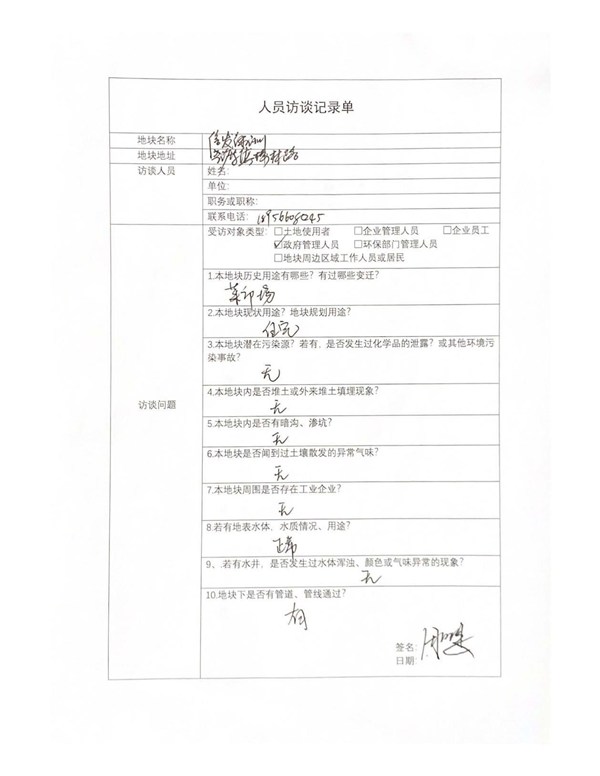 人员访谈记录单
地块名称
地块地址
访谈人员 姓名:
单位:
职务或职称:
联系电话:
受访对象类型: □土地使用者 □企业管理人员 □企业员工
☑政府管理人员 □环保部门管理人员
□地块周边区域工作人员或居民
访谈问题
1.本地块历史用途有哪些？有过哪些变迁？
2.本地块现状用途？地块规划用途？
住宅
3.本地块潜在污染源？若有, 是否发生过化学品的泄露？或其他环境污
染事故？
无
4.本地块内是否堆土或外来堆土填埋现象？
无
5.本地块内是否有暗沟、渗坑？
无
6.本地块是否闻到过土壤散发的异常气味？
无
7.本地块周围是否存在工业企业？
无
8.若有地表水体, 水质情况、用途？
正常
9、.若有水井, 是否发生过水体浑浊、颜色或气味异常的现象？
无
10.地块下是否有管道、管线通过？
签名:
日期: